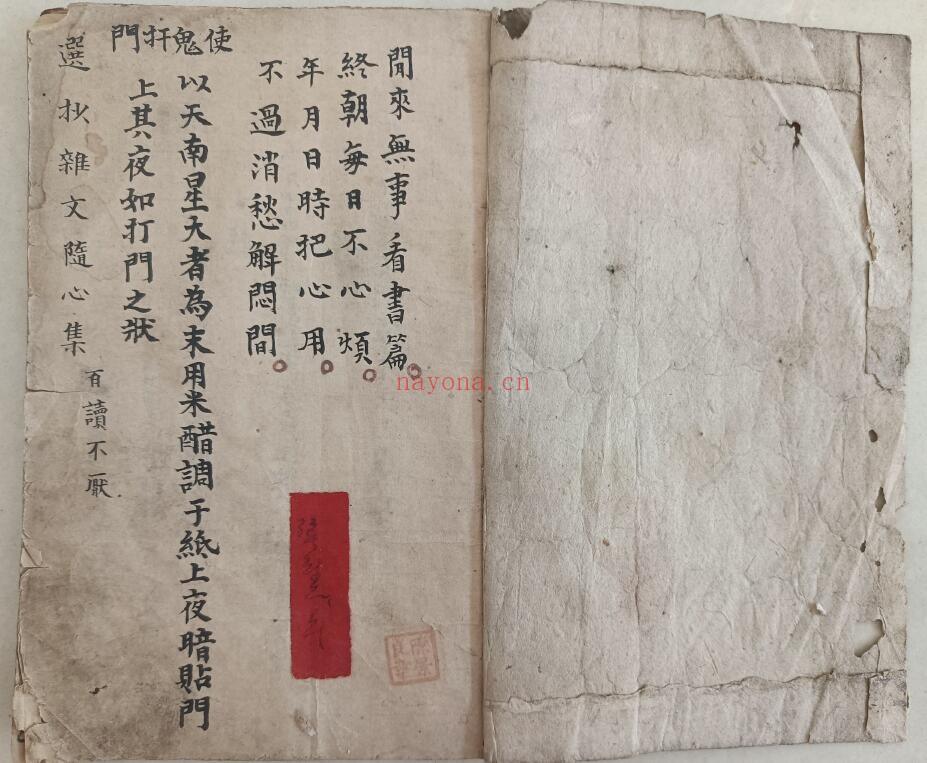 閒來無事看書篇
終朝每日不心煩
年月日時把心用
不過消愁解悶間
使鬼扞門
以天南星大者為末用米醋調于紙上夜暗貼門
上其夜如打門之狀
選抄雜文隨心集
百讀不厭
nayona.cn